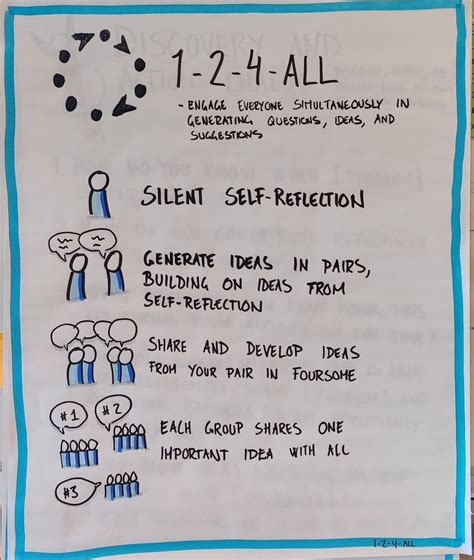 DISCOVERY AND
1-2-4-ALL
- ENGAGE EVERYONE SIMULTANEOUSLY IN
GENERATING QUESTIONS, IDEAS, AND
SUGGESTIONS
SILENT SELF-REFLECTION
GENERATE IDEAS IN PAIRS,
BUILDING ON IDEAS FROM
SELF-REFLECTION
SHARE AND DEVELOP IDEAS
FROM YOUR PAIR IN FOURSOME
#1 #2
EACH GROUP SHARES ONE
IMPORTANT IDEA WITH ALL
#3
1-2-4-ALL